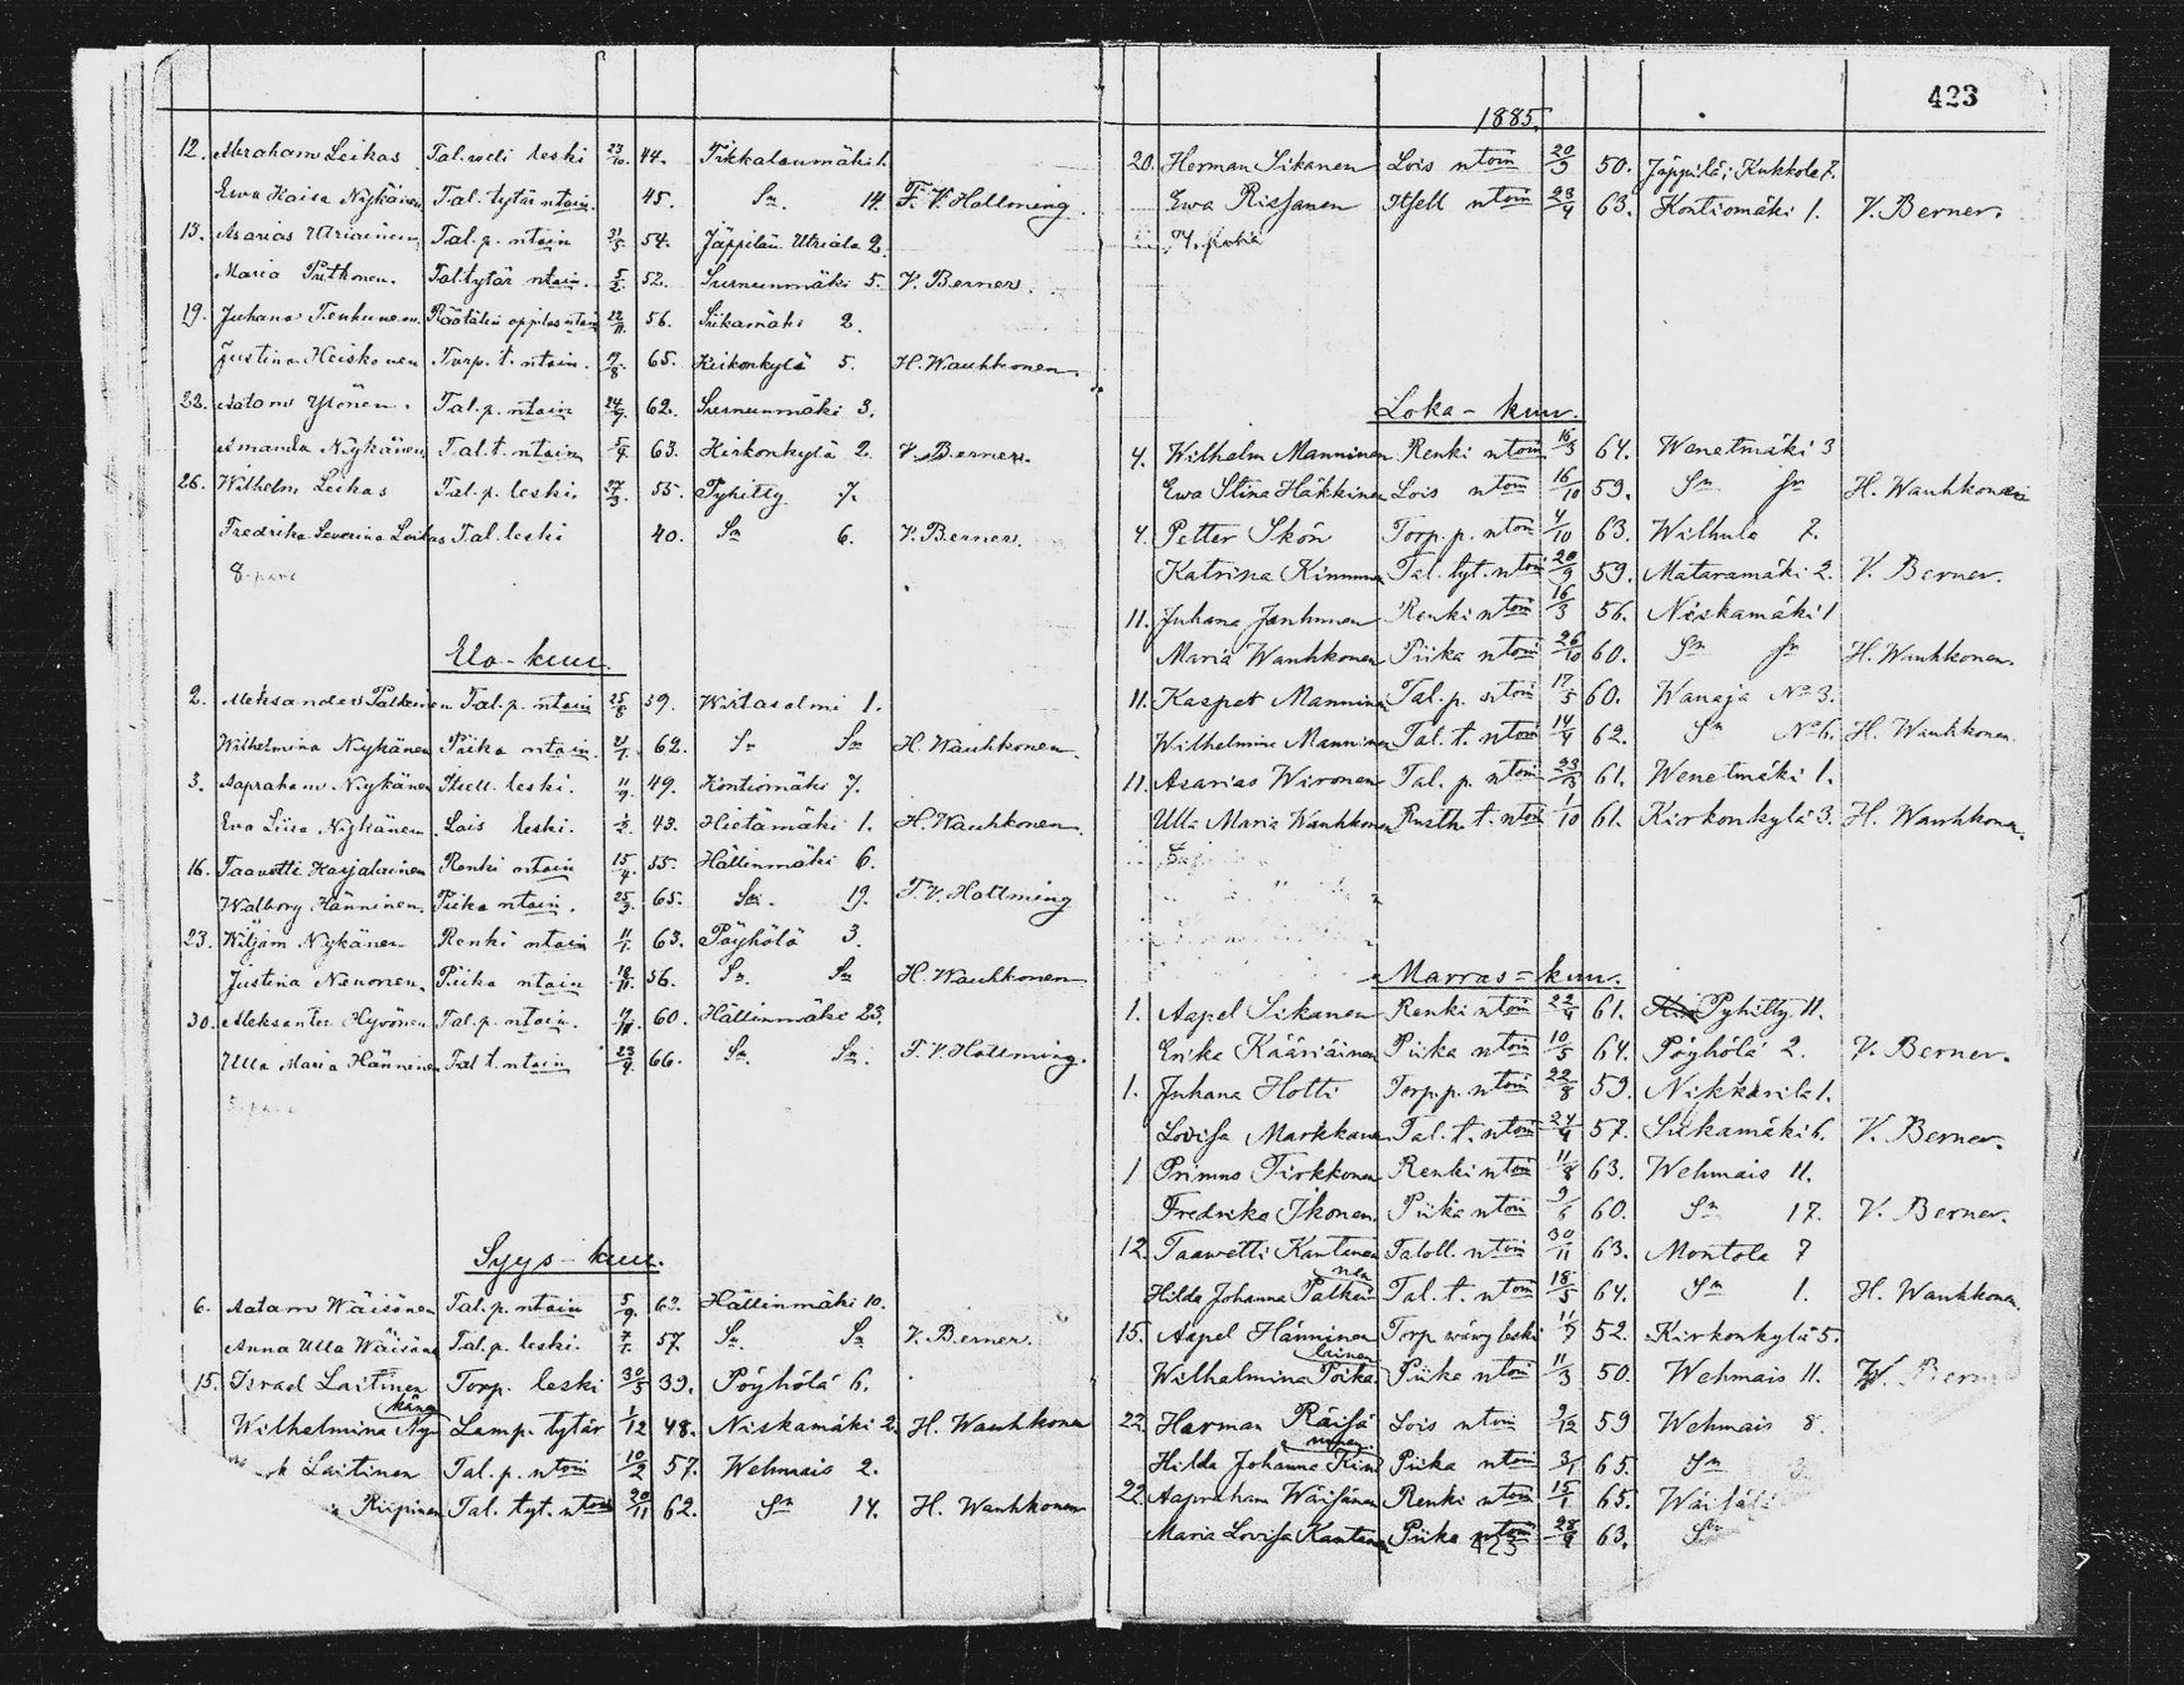 12. Abraham Leikas Tal. weli leski 23/10. 44. Tikkalanmäki 1.
Ewa Kaisa Nykänen Tal. tytär ntoin. 45. Sn. 14. F. V. Hallming.
13. Asarias Utriainen Tal. p. ntoin 31/5. 54. Jäppilän Utriala 2.
Maria Putkonen. Tal. tytär ntoin. 5/2. 52. Surnunmäki 5. V. Berner.
19. Juhana Tenhunen. Räätälin oppilas ntoin 22/11. 56. Siikamäki 2.
Justina Heiskonen Torp. t. ntoin. 65. Kirkonkylä 5. H. Wauhkonen.
22. Aatam Ylönen. Tal. p. ntoin 24/9. 62. Surnunmäki 3.
Amanda Nykänen Tal. t. ntoin 5/4. 63. Kirkonkylä 2. V. Berner.
26. Wilhelm Leikas Tal. p. leski. 27/3. 55. Pyhitty 7.
Fredrika Severina Leikas Tal. leski 40. Sn 6. V. Berner.
8. paria
Elo-kuu.
2. Aleksander Patkinen Tal. p. ntoin 25/8 59. Wirtasalmi 1.
Wilhelmina Nykänen Piika ntoin. 21/1. 62. Sn Sn H. Wauhkonen.
3. Aapraham Nykänen Itsell. leski. 11/9. 49. Kontiomäki 7.
Eva Liisa Nykänen Lois leski. 1/2. 43. Hietämäki 1. H. Wauhkonen.
16. Taavetti Karjalainen Renki ntoin 15/4. 55. Hällinmäki 6.
Walborg Hänninen. Piika ntoin. 25/3. 65. Sn. 19. F. V. Hallming
23. Wiljam Nykänen Renki ntoin 11/1. 63. Pöyhölä 3.
Justina Nenonen. Piika ntoin 18/11. 56. Sn. Sn H. Wauhkonen
30. Aleksanter Hyvönen Tal. p. ntoin. 60. Hällinmäki 23.
Ulla Maria Hänninen Tal t. ntoin 23/4. 66. Sn. Sn. F. V. Hallming.
5. paria
Syys-kuu.
6. Aatam Wäisänen Tal. p. ntoin 5/9. 62. Hällinmäki 10.
Anna Ulla Wäisänen Tal. p. leski. 7/1. 57. Sn. Sn V. Berner.
15. Israel Laitinen Torp. leski 30/5 39. Pöyhölä 6.
Wilhelmina Nykänen Lamp. tytär 1/12 48. Niskamäki 2. H. Wauhkonen
Laitinen Tal. p. ntoin 10/2 57. Wehmais 2.
Riipinen Tal. tyt. ntoin 20/11 62. Sn 14. H. Wauhkonen
423
1885.
20. Herman Sikanen Lois ntoin 20/9 50. Jäppilä, Kukkola 7.
Ewa Rissanen Itsell ntoin 23/4 63. Kontiomäki 1. V. Berner.
4. paria
Loka-kuu.
4. Wilhelm Manninen Renki ntoin 16/3 64. Wenetmäki 3
Ewa Stina Häkkinen Lois ntoin 16/10 59. Sn Sn H. Wauhkonen
4. Petter Skön Torp. p. ntoin 4/10 63. Wilhula 7.
Katrina Kinnunen Tal. tyt. ntoin 20/9 59. Mataramäki 2. V. Berner.
11. Juhana Janhunen Renki ntoin 16/3 56. Niskamäki 1
Maria Wauhkonen Piika ntoin 26/10 60. Sn Sn H. Wauhkonen.
11. Kasper Manninen Tal. p. ntoin 17/5 60. Wanaja No 3.
Wilhelmina Manninen Tal. t. ntoin 14/4 62. Sn No 6. H. Wauhkonen
11. Asarias Wironen Tal. p. ntoin 23/3 61. Wenetmäki 1.
Ulla Maria Wauhkonen Rusth. t. ntoin 1/10 61. Kirkonkylä 3. H. Wauhkonen.
Marras=kuu.
1. Aapel Sikanen Renki ntoin 22/4 61. Pyhitty 11.
Erika Kääriäinen Piika ntoin 10/5 64. Pöyhölä 2. V. Berner.
1. Juhana Hotti Torp. p. ntoin 22/8 59. Nikkarila 1.
Lovisa Markkanen Tal. t. ntoin 24/4 57. Siikamäki 6. V. Berner.
1 Primus Tirkkonen Renki ntoin 11/8 63. Wehmais 11.
Fredrika Ikonen. Piika ntoin 9/6 60. Sn 17. V. Berner.
12. Taawetti Kantanen Taloll. ntoin 30/11 63. Montola 7
Hilda Johanna Patkinen Tal. t. ntoin 18/5 64. Sn 1. H. Wauhkonen.
15. Aapel Hänninen Torp wäwy leski 11/7 52. Kirkonkylä 5.
Wilhelmina Poikalainen Piika ntoin 11/3 50. Wehmais 11. V. Bern
22. Harman Räisä Lois ntoin 9/12 59 Wehmais 8.
Hilda Johanna Kinnunen. Piika ntoin 3/1 65. Sn 3.
22. Aapraham Wäisänen Renki ntoin 15/1 65. Wäisälä
Maria Lovisa Kantanen Piika ntoin 28/9 63. Sn
423